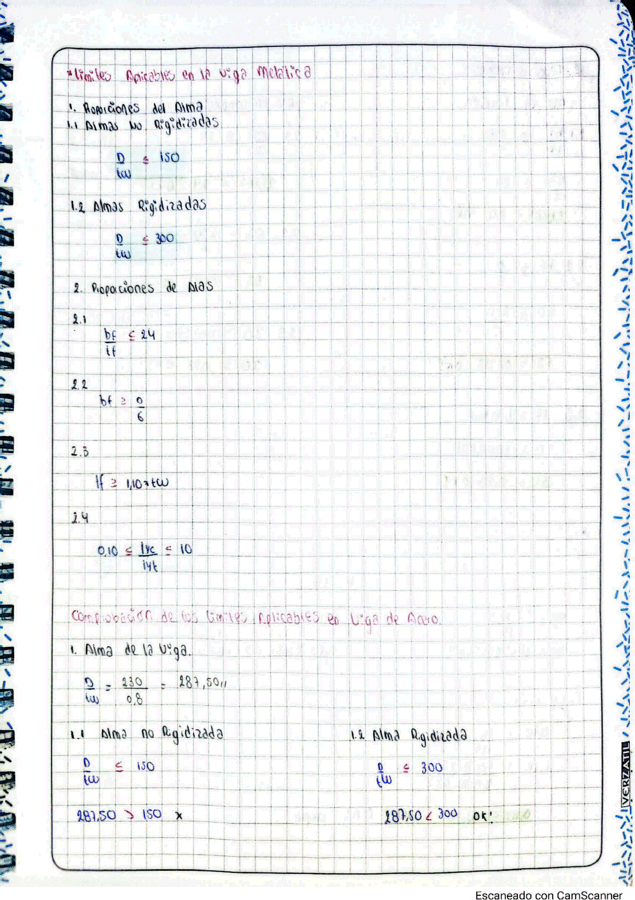 *Limites Aplicables en la viga Metálica
1. Proporciones del Alma
1.1 Almas No Rigidizadas
D/tw ≤ 150
1.2 Almas Rigidizadas
D/tw ≤ 300
2. Proporciones de Alas
2.1
bf/tf ≤ 24
2.2
bf ≥ D/6
2.3
tf ≥ 1,10*tw
2.4
0,10 ≤ Iyc/Iyt ≤ 10
Comprobación de los Limites Aplicables en Viga de Acero.
1. Alma de la Viga.
D/tw = 230/0,8 = 287,50//
1.1 Alma no Rigidizada
D/tw ≤ 150
287,50 > 150 x
1.2 Alma Rigidizada
D/tw ≤ 300
287,50 < 300 OK!
VERIZATIL
Escaneado con CamScanner